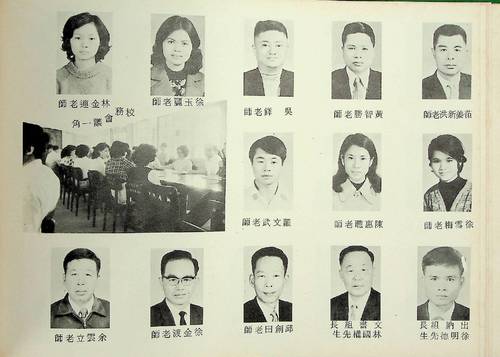 苗姜新洪老師
黃智勝老師
吳 老師
徐玉 老師
林金連老師
校務會議一角
徐雪梅老師
陳惠 老師
羅文武老師
出納組長
徐明德先生
文書組長
林國權先生
創田老師
徐金渡老師
余雲立老師